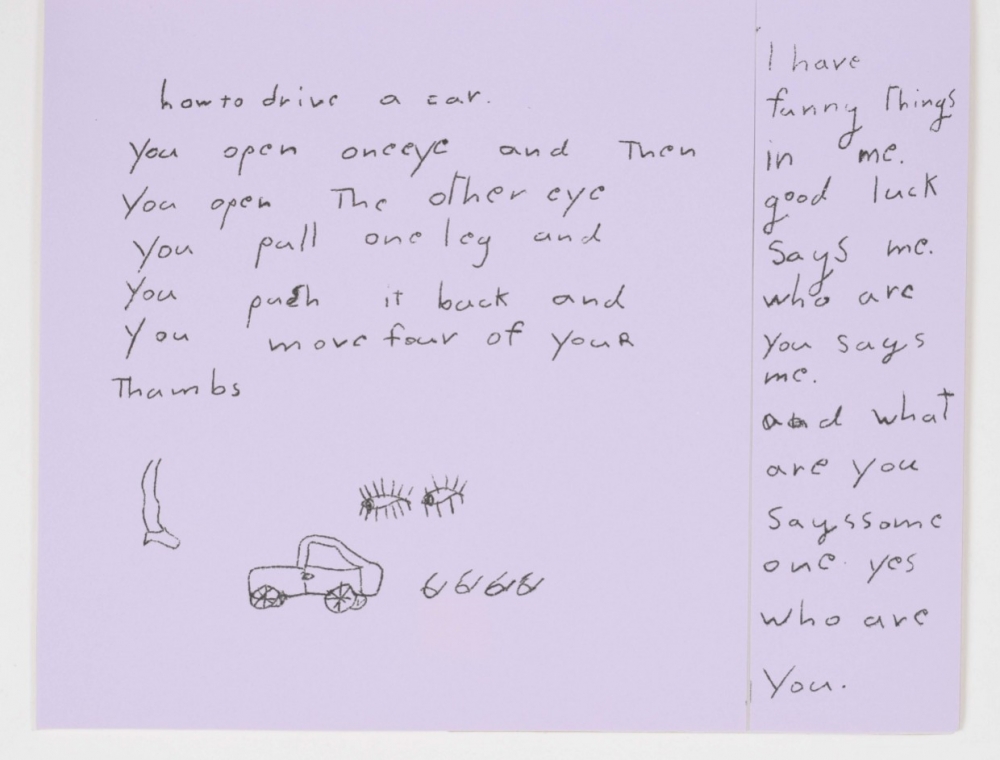 how to drive a car.
You open oneeye and Then
You open The other eye
You pull one leg and
You push it back and
You move four of youR
Thumbs
I have
funny Things
in me.
good luck
Says me.
who are
You says
me.
and what
are you
Sayssome
one. yes
who are
You.